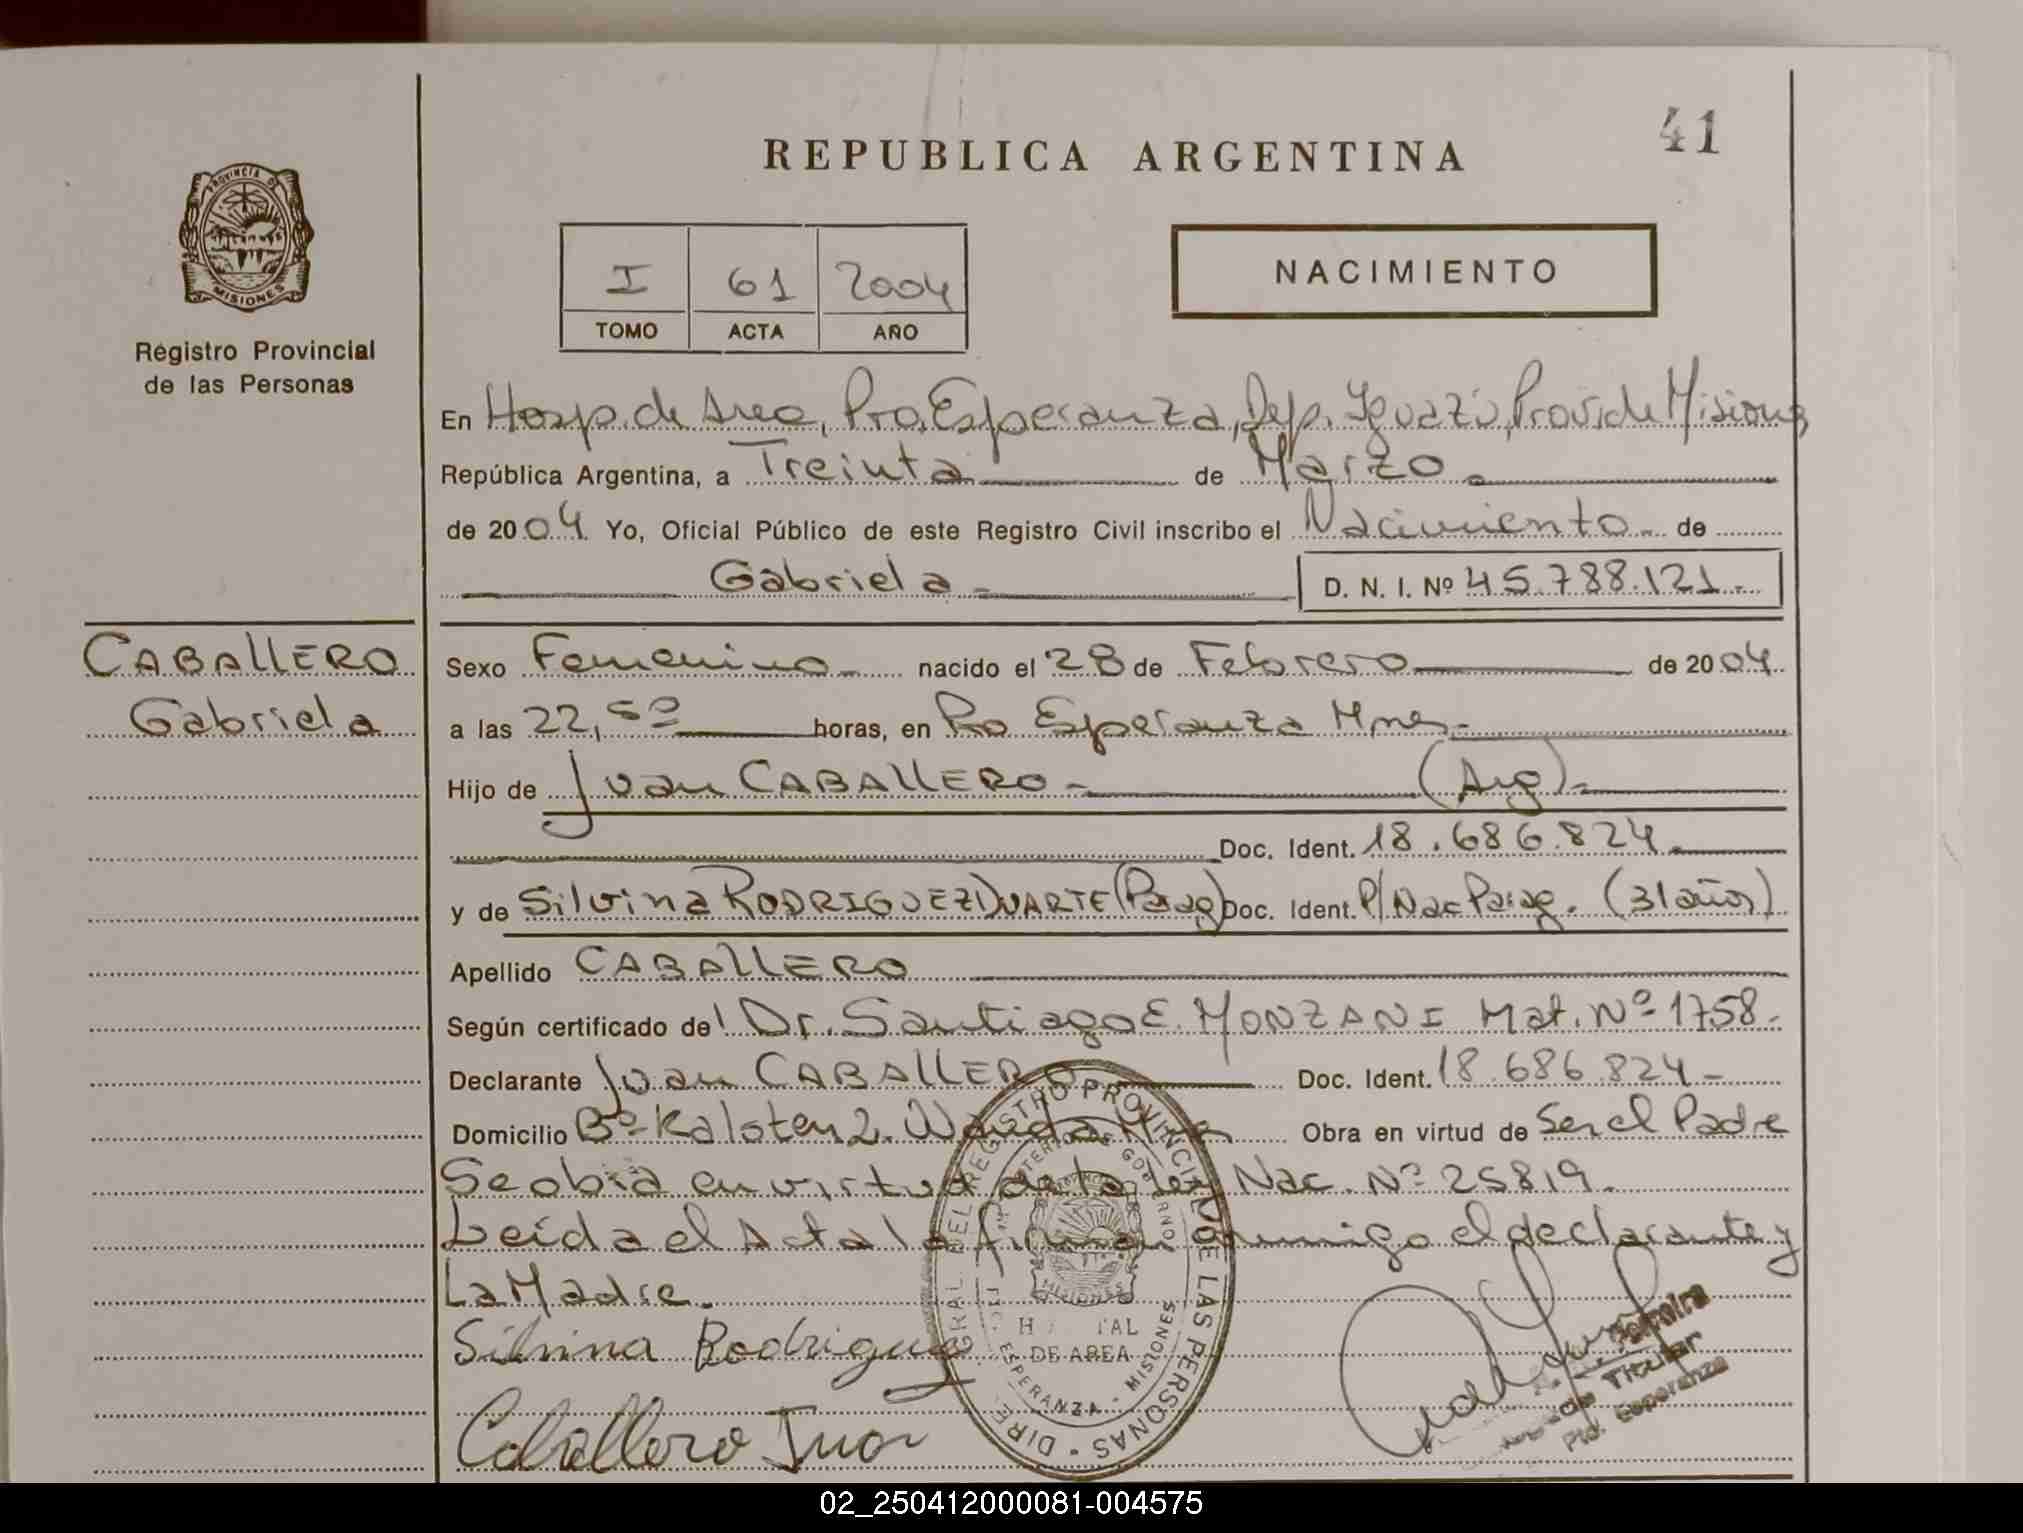 41
REPUBLICA ARGENTINA
PROVINCIA DE
MISIONES
Registro Provincial
de las Personas
I 61 2004
TOMO ACTA AÑO
NACIMIENTO
En Hosp. de Area, Pto. Esperanza, Dep. Iguazú, Prov. de Misiones
República Argentina, a Treinta de Marzo
de 2004 Yo, Oficial Público de este Registro Civil inscribo el Nacimiento de
Gabriela D. N. I. Nº 45.788.121.-
CABALLERO
Gabriela
Sexo Femenino nacido el 28 de Febrero de 2004
a las 22,50 horas, en Pto Esperanza Mnes.
Hijo de Juan CABALLERO (Arg)
Doc. Ident. 18.686.824
y de Silvina RODRIGUEZ DUARTE (Parag) Doc. Ident. P/Nac Parag. (31 años)
Apellido CABALLERO
Según certificado de Dr. Santiago E. MONZANI Mat. Nº 1758.
Declarante Juan CABALLERO Doc. Ident. 18.686.824
Domicilio Bº Kalsten 2. Wanda Mnes Obra en virtud de Ser el Padre
Se obra en virtud de la ley Nac. Nº 25819.
Leída el Acta la firman conmigo el declarante y
La Madre.
Silvina Rodriguez
Caballero Juan
DIRE GRAL DEL REGISTRO PROVINCIAL DE LAS PERSONAS
DE GOBIERNO
MISIONES
DE AREA
ESPERANZA - MISIONES
Titular
Pto. Esperanza
02_250412000081-004575